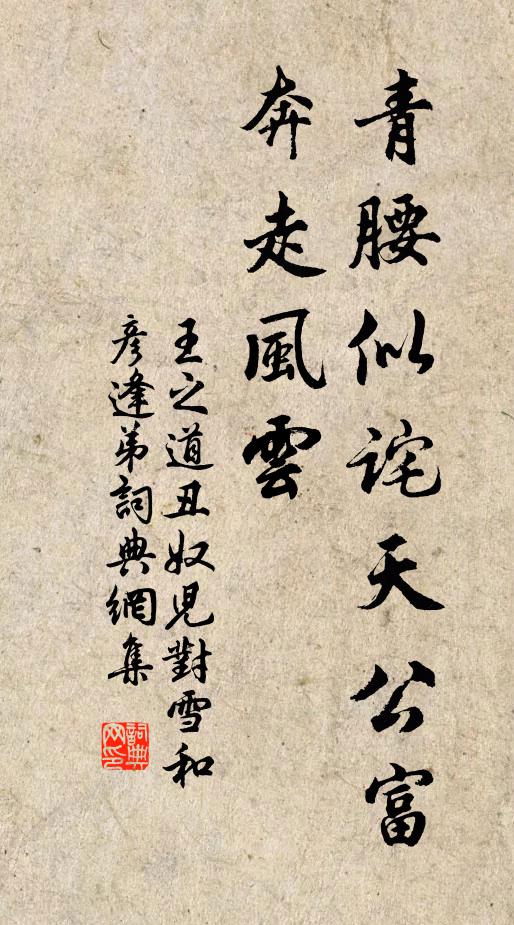 青腰似詫天公富
奔走風雲
王之道丑奴兒對雪和
彥逢弟詞典網集
詞典
网印